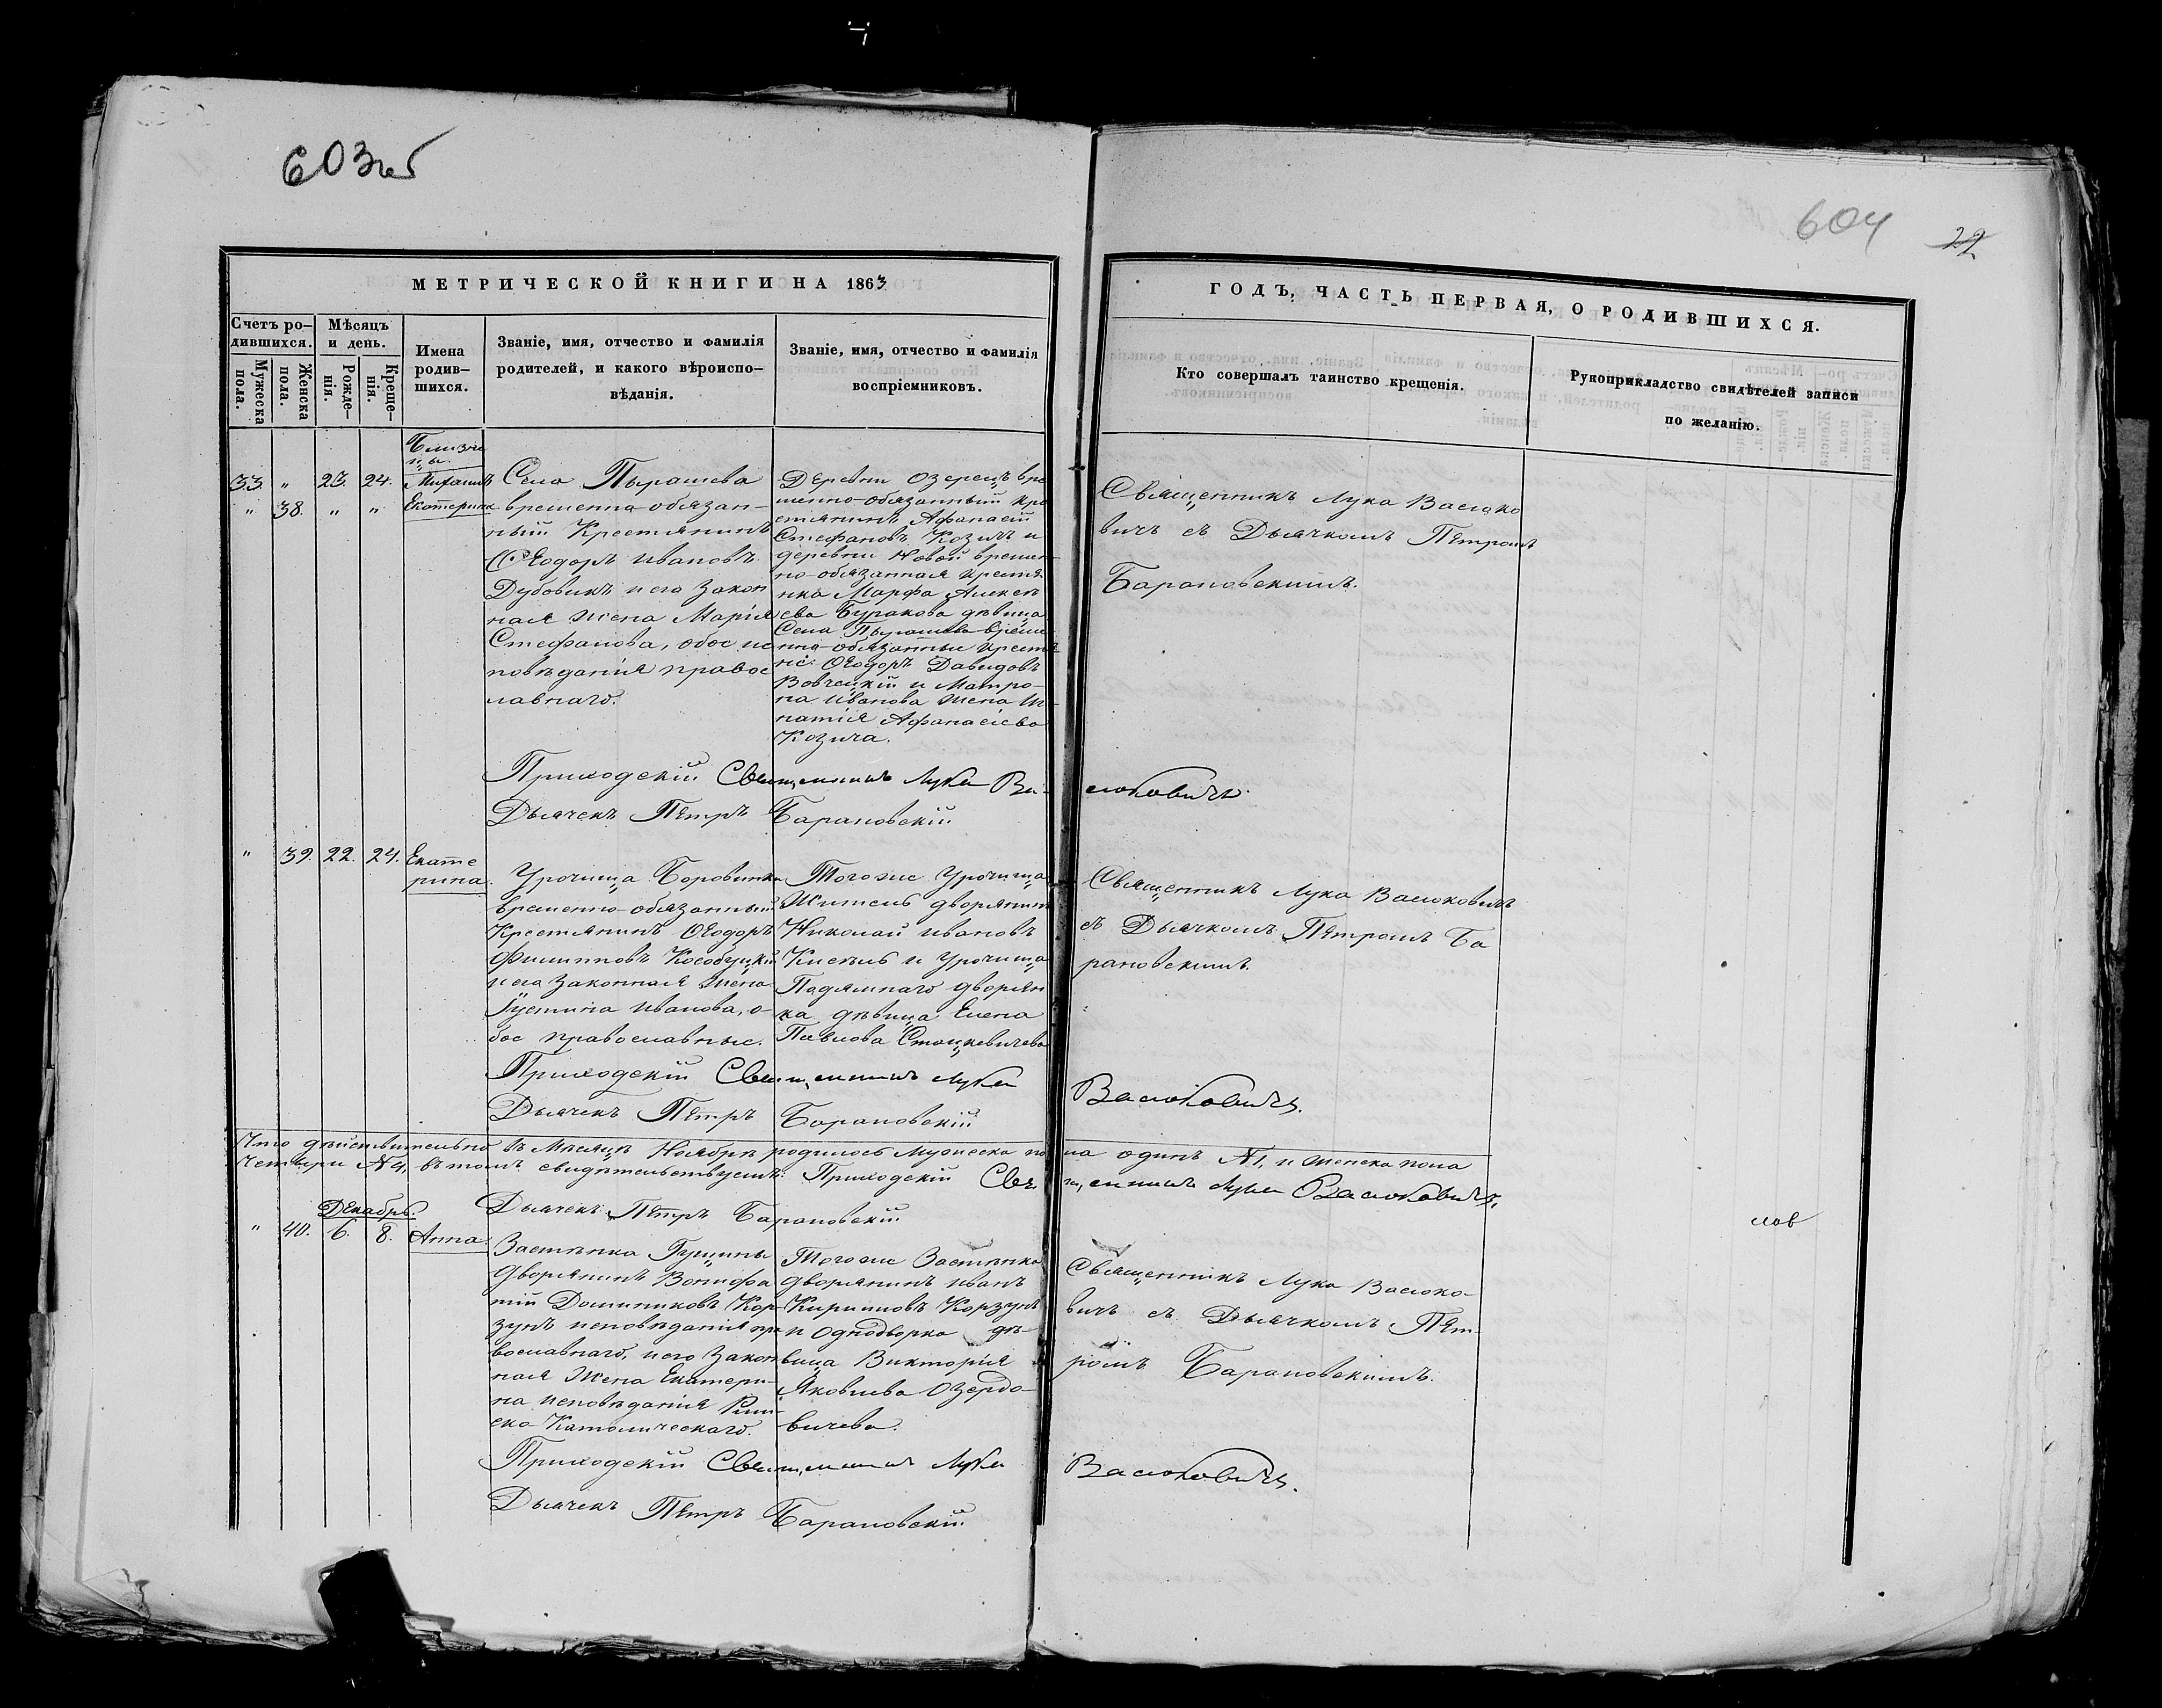 603 об
604
22
МЕТРИЧЕСКОЙ КНИГИ НА 1863
Счетъ ро-
дившихся.
Мужеска
пола.
Женска
пола.
Мѣсяцъ
и день.
Рожде-
нія.
Креще-
нія.
Имена
родив-
шихся.
Званіе, имя, отчество и фамилія
родителей, и какого вѣроиспо-
вѣданія.
Званіе, имя, отчество и фамилія
воспріемниковъ.
ГОДЪ, ЧАСТЬ ПЕРВАЯ, О РОДИВШИХСЯ.
Кто совершалъ таинство крещенія.
Рукоприкладство свидѣтелей записи
по желанію.
Близне
цы.
33. " 23. 24. Михаилъ
" 38. " " Екатерина
Села Пырашева
временно-обязан-
ный Крестьянинъ
Ѳеодоръ Ивановъ
Дубовикъ и его закон
ная жена Марія
Стефанова, обое ис
повѣданія правос
лавнаго.
Деревни Озерецъ вре
менно-обязанный кре
стьянинъ Афанасій
Стефановъ Козичъ и
деревни Новой времен
но-обязанная крестья
нка Марфа Алексѣ
ева Буракова дѣвица
Села Пырашева време
нно-обязанные крестья
не: Ѳеодоръ Давидовъ
Вовчецкій и Матро-
на Иванова жена Иг
натія Афанасіева
Козича.
Священникъ Лука Васюко
вичъ съ Дьячкомъ Петромъ
Барановскимъ.
Приходскій Священникъ Лука Ва-
сюковичъ.
Дьячекъ Петръ Барановскій
" 39. 22. 24. Екате
рина.
Урочища Боровинки
временно-обязанный
Крестьянинъ Ѳеодоръ
Филипповъ Кособуцкій
и его законная жена
Іустина Иванова, о-
бое православные.
Тогоже Урочища
Житель дворянинъ
Николай Ивановъ
Кисель и Урочища
Падямнаго дворян
ка дѣвица Елена
Павлова Стацкевичева
Священникъ Лука Васюковичъ
съ Дьячкомъ Петромъ Ба
рановскимъ.
Приходскій Священникъ Лука
Васюковичъ.
Дьячекъ Петръ Барановскій
Что дѣйствительно въ Мѣсяцѣ Ноябрѣ родилось Мужеска по
ла одинъ №1, и женска пола
четыри №4, въ томъ свидѣтельствуемъ: Приходскій Свя
щенникъ Лука Васюковичъ,
Дьячекъ Петръ Барановскій
Декабрь.
" 40. 6. 8. Анна
Застѣнка Гущины
Дворянинъ Вонифа
тій Доминиковъ Кор-
зунъ исповѣданія пра
вославнаго, и его закон
ная жена Екатери-
на исповѣданія Рим-
ско Католическаго.
Тогоже Застѣнка
дворянинъ Иванъ
Кириловъ Корзунъ
и Однодворка дѣ-
вица Викторія
Яковлева Озердо-
вичева.
Священникъ Лука Васюко-
вичъ съ Дьячкомъ Пет-
ромъ Барановскимъ.
Приходскій Священникъ Лука
Васюковичъ.
Дьячекъ Петръ Барановскій